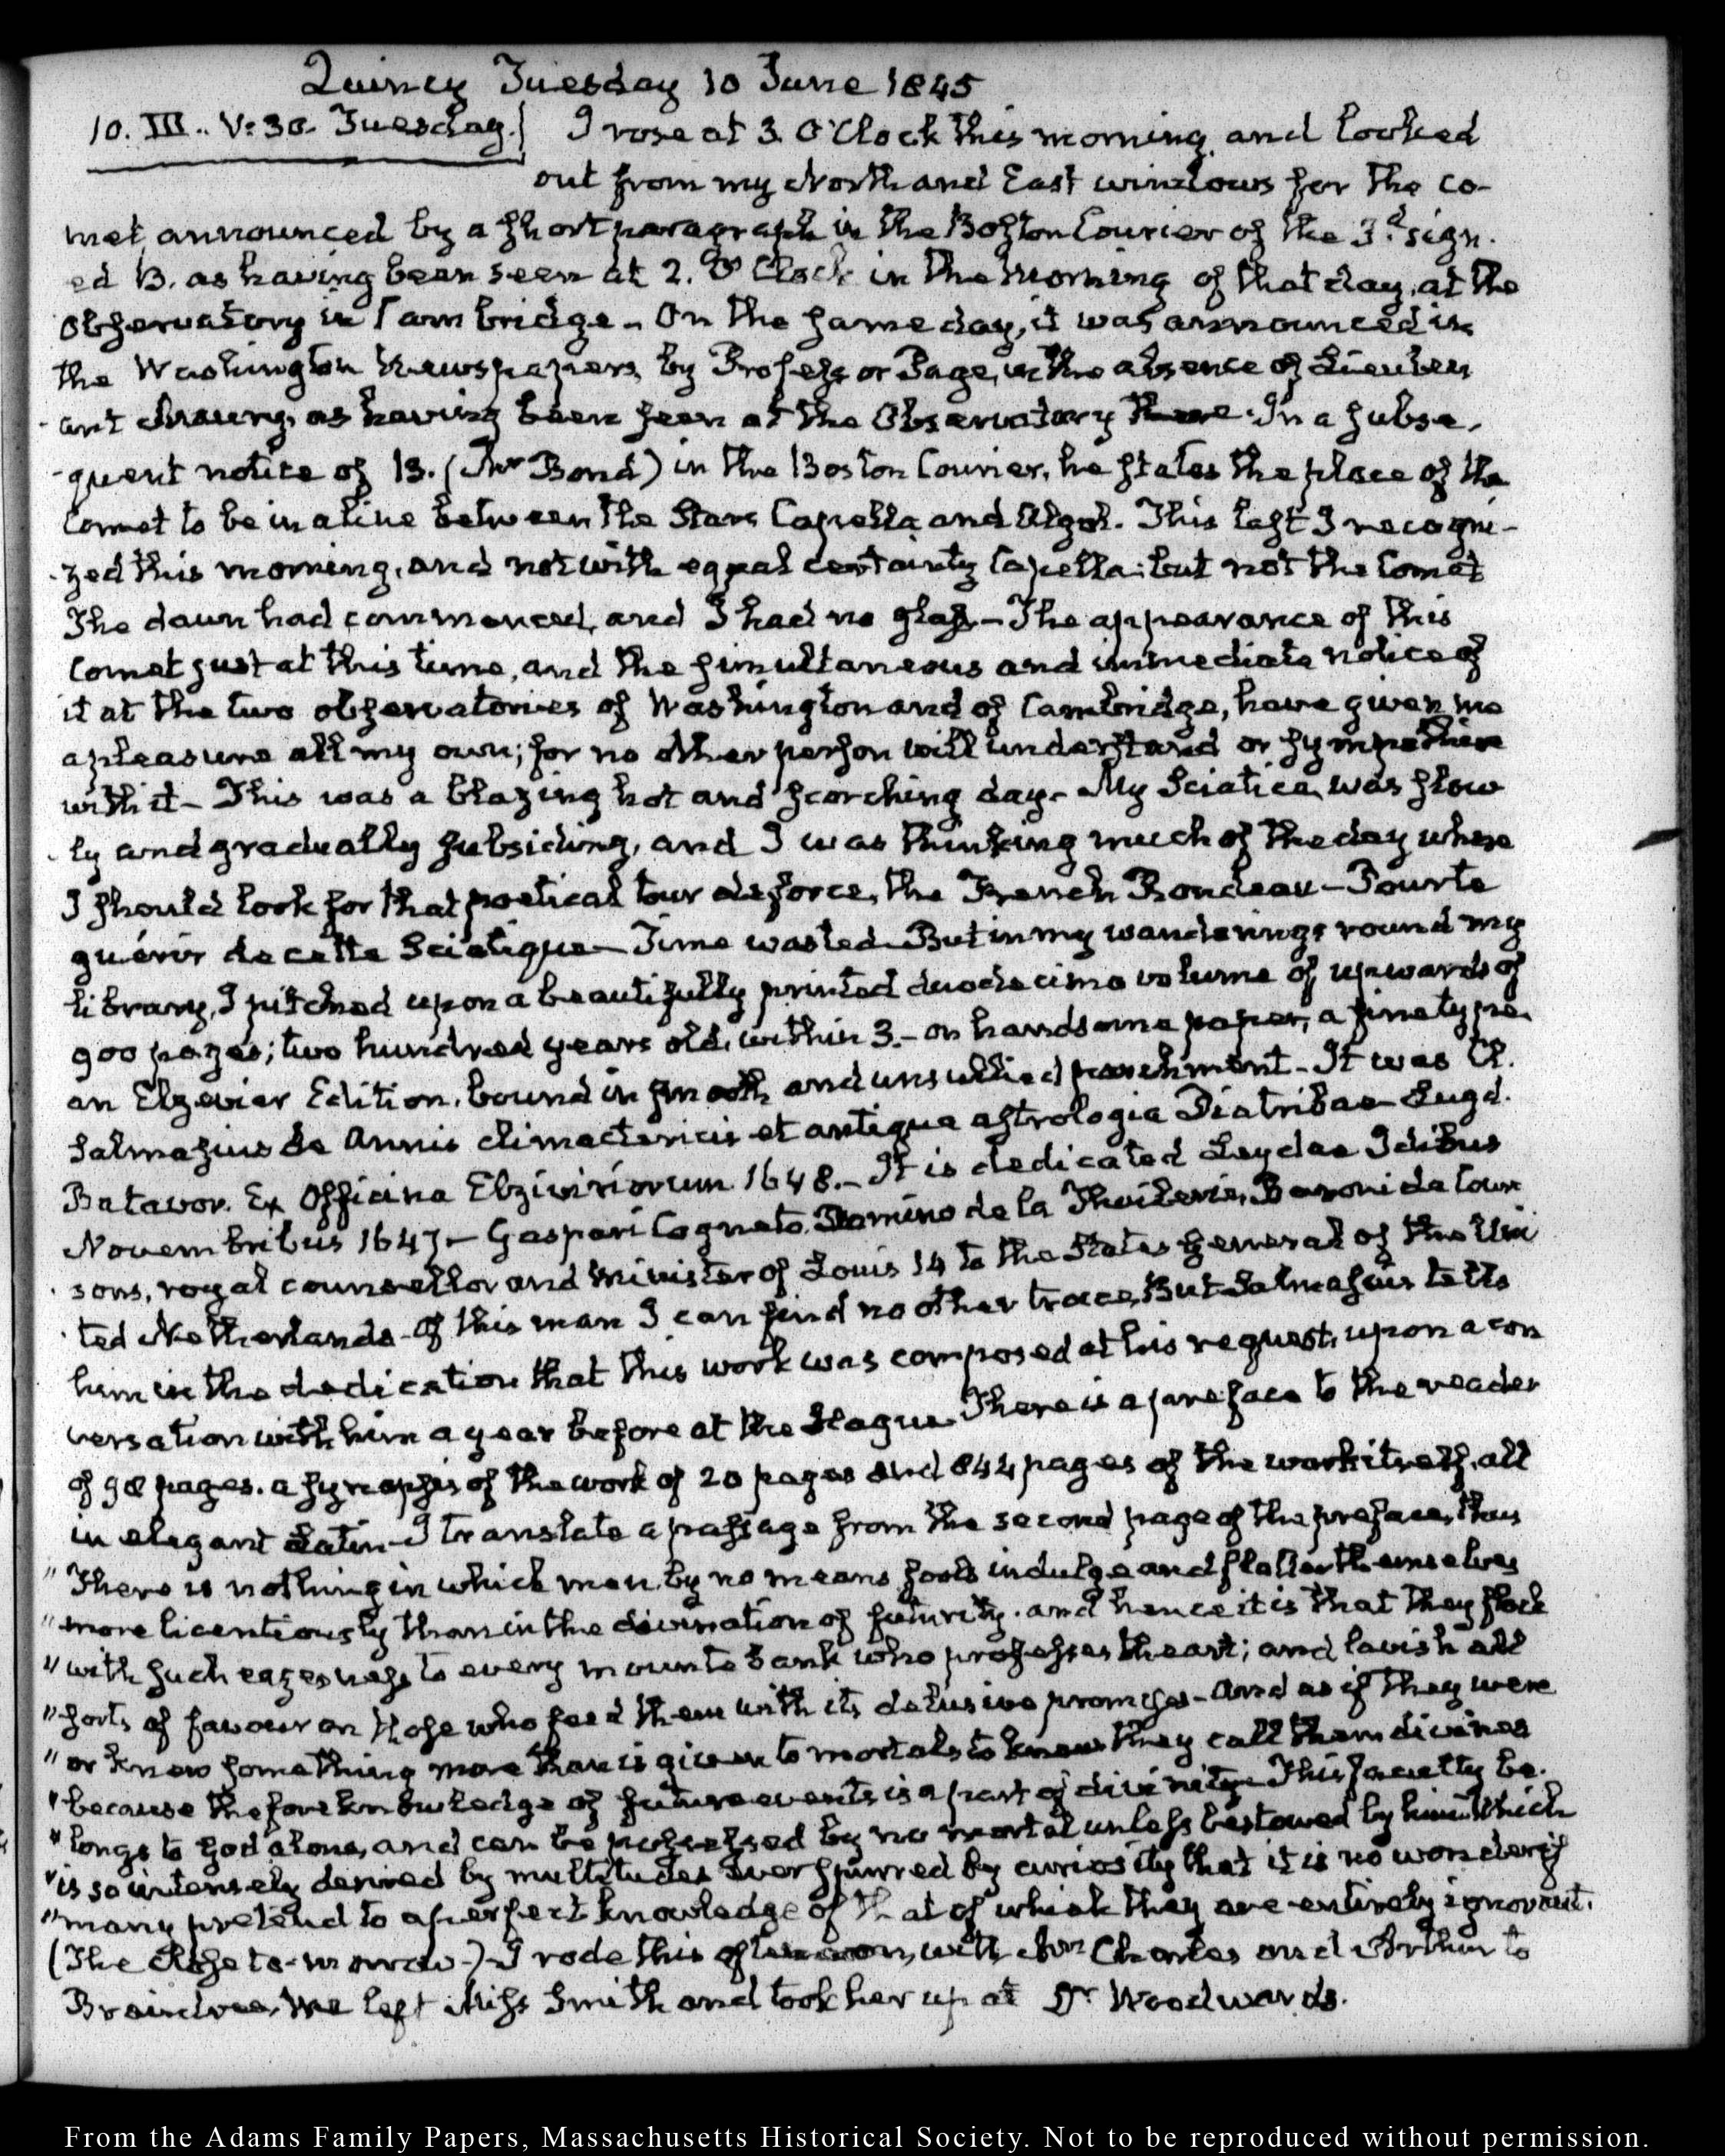 Quincy Tuesday 10 June 1845
10. III.. V:30. Tuesday.} I rose at 3. O'Clock this morning, and looked
out from my North and East windows for the co-
met announced by a short paragraph in the Boston Courier of the 3.d sign-
ed B. as having been seen at 2. O'Clock in the morning of that day, at the
observatory in Cambridge - On the same day, it was announced in
the Washington Newspapers, by Professor Page, in the absence of Lieuten
-ant Maury, as having been seen at the Observatory there. In a subse-
-quent notice of B. (Mr Bond) in the Boston Courier, he states the place of the
Comet to be in a line between the Stars Capella and Algol. This last I recogni-
-zed this morning, and not with equal certainty Capella: but not the Comet
The dawn had commenced, and I had no glass - The appearance of this
Comet just at this time, and the simultaneous and immediate notice of
it at the two observatories of Washington and of Cambridge, have given me
a pleasure all my own; for no other person will understand or sympathise
with it - This was a blazing hot and scorching day - My Sciatica was slow
-ly and gradually subsiding, and I was thinking much of the day where
I should look for that poetical tour de force, the French Rondeau - Pour te
guérir de cette Sciatique - Time wasted. But in my wanderings round my
library, I pitched upon a beautifully printed duodecimo volume of upwards of
900 pages; two hundred years old, within 3. - on handsome paper, a fine type
an Elzevier Edition, bound in smooth and unsullied parchment - It was Cl.
Salmasius de Annis climactericis et antiqua astrologia Diatribae - Lugd.
Batavor. Ex Officina Elziviriorum 1648. - It is dedicated Leydae Idibus
Novembribus 1647 - Gaspari Cogneto. Domino de la Thuilerie, Baroni de Cour
sons, royal counsellor and Minister of Louis 14 to the States General of the Uni
-ted Netherlands - Of this man I can find no other trace, But Salmasius tells
him in the dedication that this work was composed at his request, upon a con
versation with him a year before at the Hague. There is a preface to the reader
of 98 pages. a synopsis of the work of 20 pages and 844 pages of the work itself, all
in elegant Latin - I translate a passage from the second page of the preface, thus
"There is nothing in which men, by no means fools indulge and flatter themselves
"more licentiously than in the divination of futurity. and hence it is that they flock
"with such eagerness to every mountebank who professes the art; and lavish all
"sorts of favour on those who feed them with its delusive promises - And as if they were
"or knew something more than is given to mortals to know they call them divines
"because the foreknowledge of future events is a part of divinity - This faculty be-
"longs to God alone, and can be possessed by no mortal unless bestowed by him. Which
"is so intensely desired by multitudes over spurred by curiosity that it is no wonder if
"many pretend to a perfect knowledge of that of which they are entirely ignorant.
(The rest to-morrow -) I rode this afternoon, with Mrs Charles and Arthur to
Braintree, We left Miss Smith and took her up at Dr Woodwards.
From the Adams Family Papers, Massachusetts Historical Society. Not to be reproduced without permission.